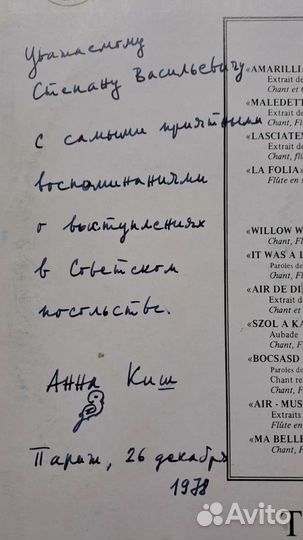 Уважаемому
Степану Васильевичу
с самыми приятными
воспоминаниями
о выступлениях
в Советском
посольстве.
Анна Киш
Париж, 26 декабря
1978
«AMARILLI
Extrait de
Chant et
«MALEDETT
Extrait de
Chant, Fl
«LASCIATEM
Extrait de
Chant, flû
«LA FOLIA»
Flûte en
«WILLOW W
Chant, Fl
«IT WAS A L
Paroles de
Chant, F
«AIR DE DÉ
Extrait d
Chant et
«SZOL A KA
Aubade
Chant, Fl
«BOCSASD
Paroles de
Chant re
Chant, F
«AIR - MUS
Extraits
Flûte en
«MA BELLE
Chant, Fl
Avito